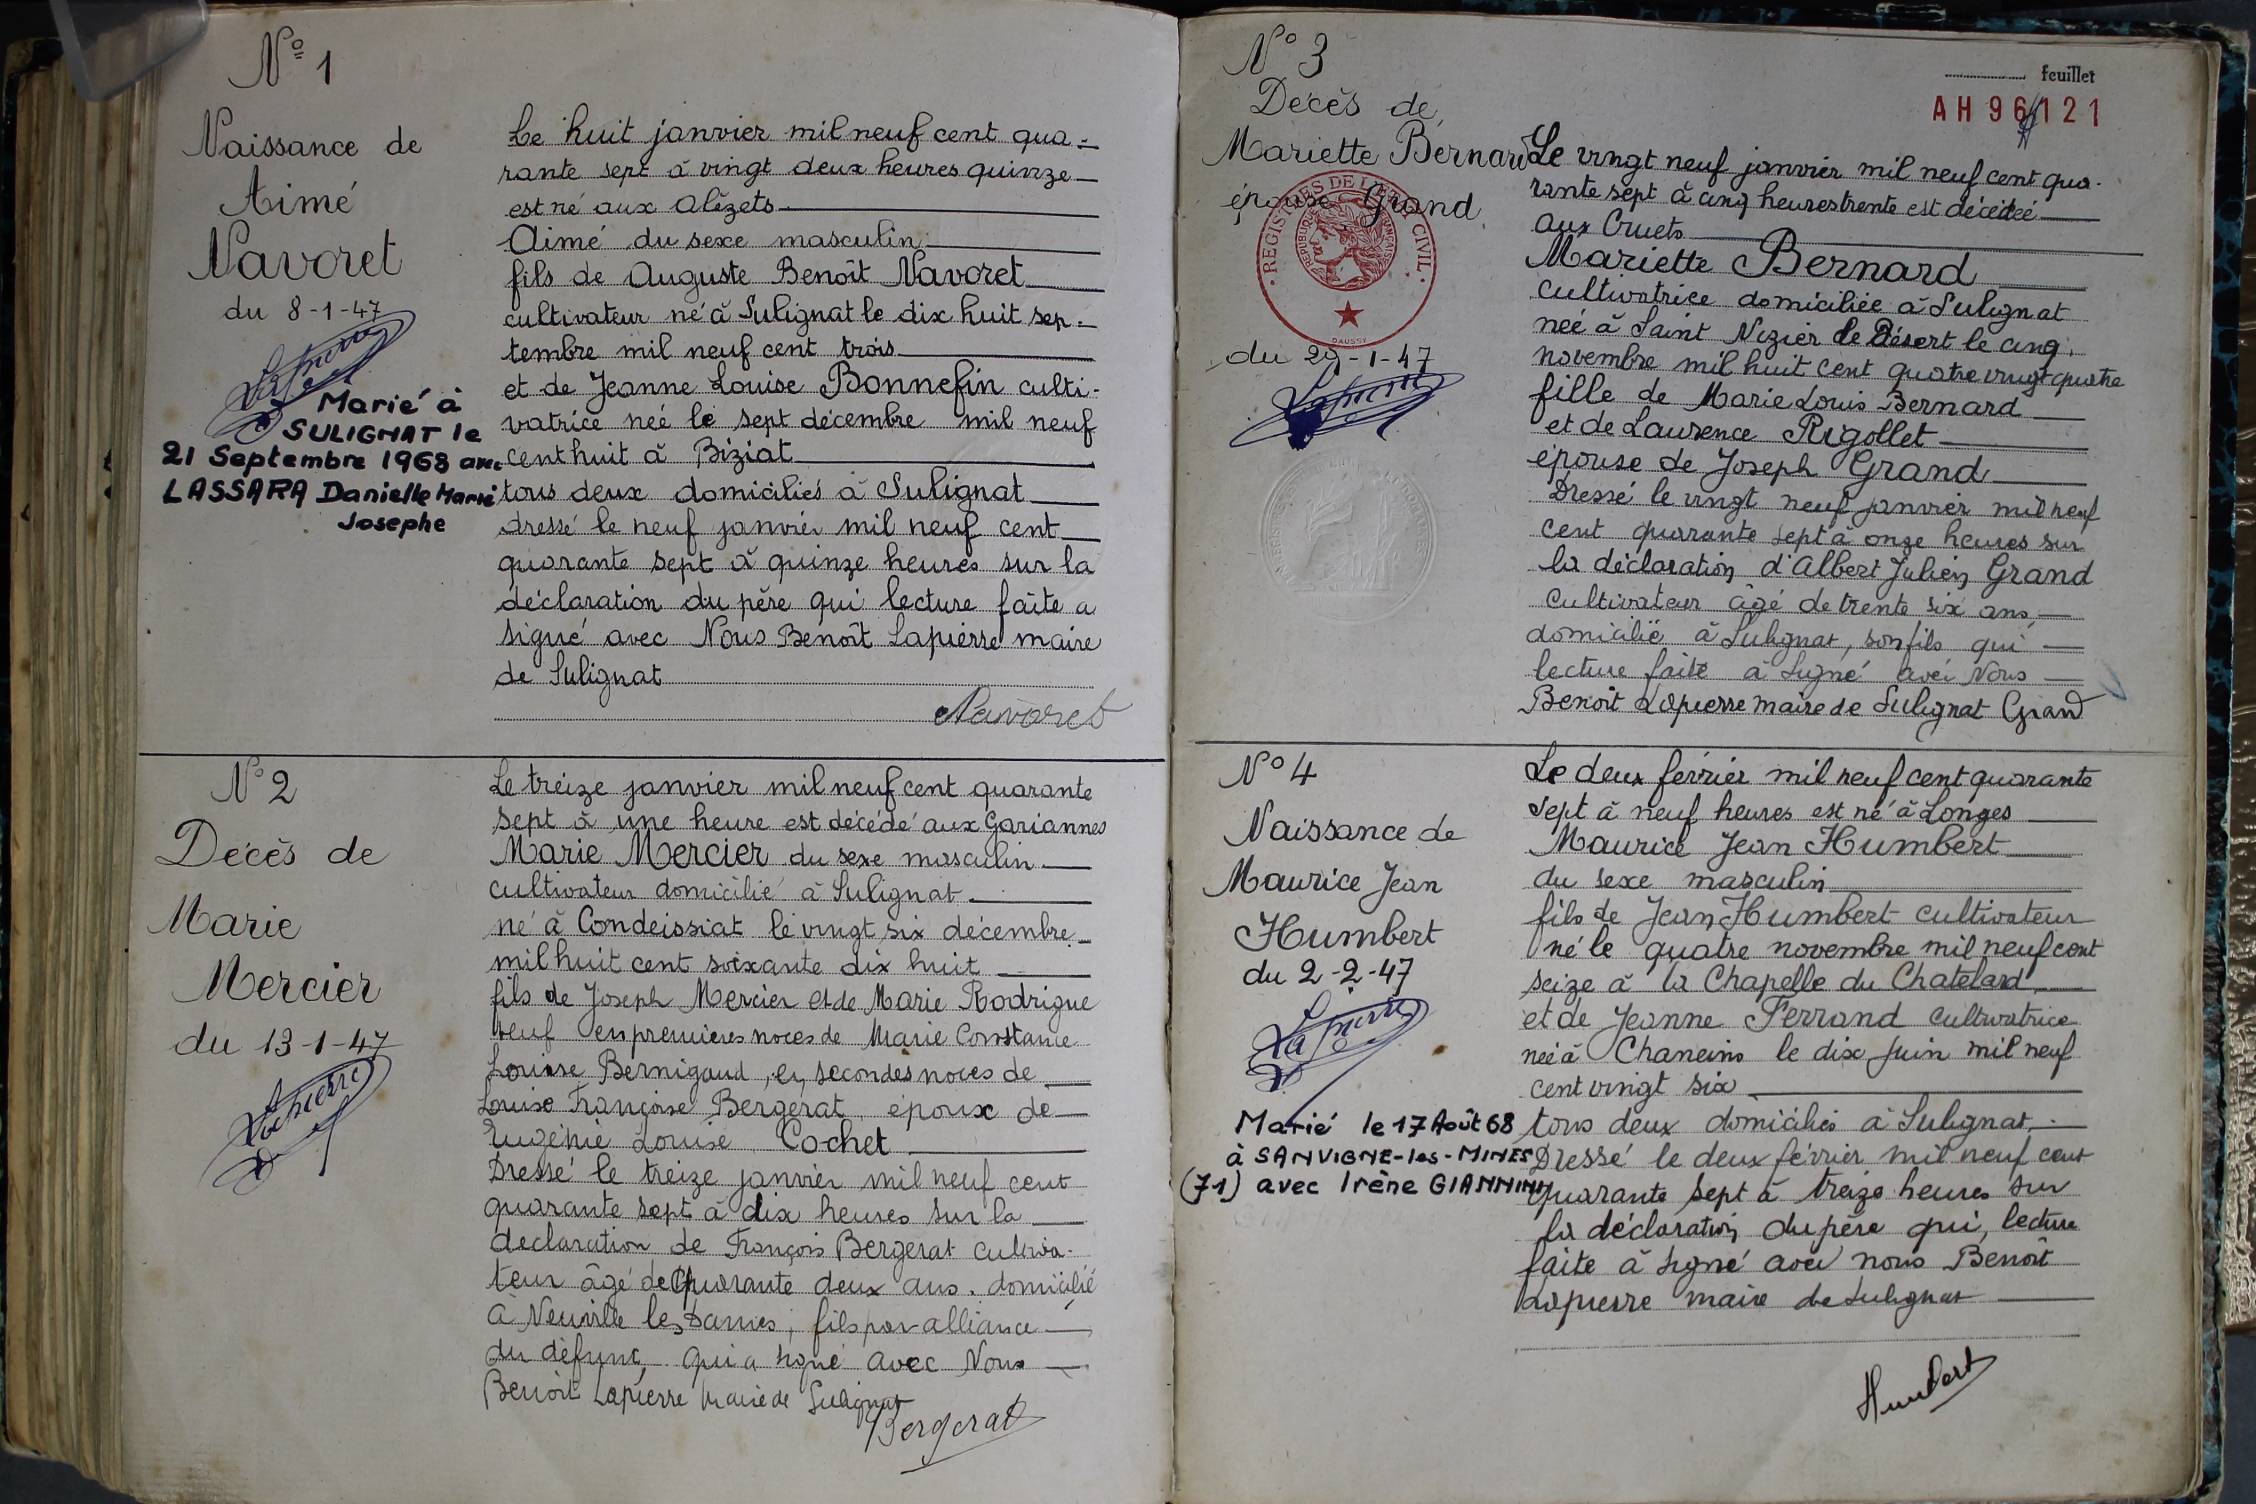 N° 1
Naissance de
Aimé
Navoret
du 8-1-47
Lapierre
Marié à
SULIGNAT le
21 Septembre 1968 avec
LASSARA Danielle Marie
Josephe
Le huit janvier mil neuf cent qua-
rante sept à vingt deux heures quinze
est né aux Alézets
Aimé du sexe masculin
fils de Auguste Benoît Navoret
cultivateur né à Sulignat le dix huit sep-
tembre mil neuf cent trois
et de Jeanne Louise Bonnefin culti-
vatrice neé le sept décembre mil neuf
cent huit à Biziat
tous deux domiciliés à Sulignat
dressé le neuf janvier mil neuf cent
quarante sept à quinze heures sur la
déclaration du père qui lecture faite a
signé avec Nous Benoît Lapierre maire
de Sulignat
Navoret
N° 2
Décès de
Marie
Mercier
du 13-1-47
Lapierre
Le treize janvier mil neuf cent quarante
sept à une heure est décédé aux Gariannes
Marie Mercier du sexe masculin
cultivateur domicilié à Sulignat
né à Condeissiat le vingt six décembre
mil huit cent soixante dix huit
fils de Joseph Mercier et de Marie Rodrigue
veuf en premières noces de Marie Constance
Louise Bernigaud, en secondes noces de
Louise Françoise Bergerat, époux de
Eugénie Louise Cochet
Dressé le treize janvier mil neuf cent
quarante sept à dix heures sur la
declaration de François Bergerat cultiva-
teur âgé de quarante deux ans. domicilié
à Neuville les Dames, fils par alliance
du défunt qui a signé avec Nous
Benoît Lapierre maire de Sulignat
Bergerat
N° 3
Décès de
Mariette Bernard
épouse Grand
REGISTRES DE L'ETAT CIVIL
REPUBLIQUE FRANÇAISE
DAUSSY
du 29-1-47
Lapierre
feuillet
AH 96121
Le vingt neuf janvier mil neuf cent qua-
rante sept à cinq heures trente est décédée
aux Cruets
Mariette Bernard
cultivatrice domiciliée à Sulignat
neé à Saint Nizier le Désert le cinq
novembre mil huit cent quatre vingt quatre
fille de Marie Louis Bernard
et de Laurence Rigollet
épouse de Joseph Grand
Dressé le vingt neuf janvier mil neuf
cent quarante sept à onze heures sur
la déclaration d'Albert Julien Grand
cultivateur âgé de trente six ans
domicilié à Sulignat, son fils qui
lecture faite à signé avec Nous
Benoît Lapierre maire de Sulignat Grand
N° 4
Naissance de
Maurice Jean
Humbert
du 2-2-47
Lapierre
Marié le 17 Août 68
à SANVIGNE-les-MINES
(71) avec Irène GIANNINI
Le deux février mil neuf cent quarante
sept à neuf heures est né à Longes
Maurice Jean Humbert
du sexe masculin
fils de Jean Humbert cultivateur
né le quatre novembre mil neuf cent
seize à la Chapelle du Chatelard
et de Jeanne Ferrand cultivatrice
neé à Chaneins le dix juin mil neuf
cent vingt six
tous deux domiciliés à Sulignat.
Dressé le deux février mil neuf cent
quarante sept à treize heures sur
la déclaration du père qui, lecture
faite à signé avec nous Benoît
Lapierre maire de Sulignat
Humbert